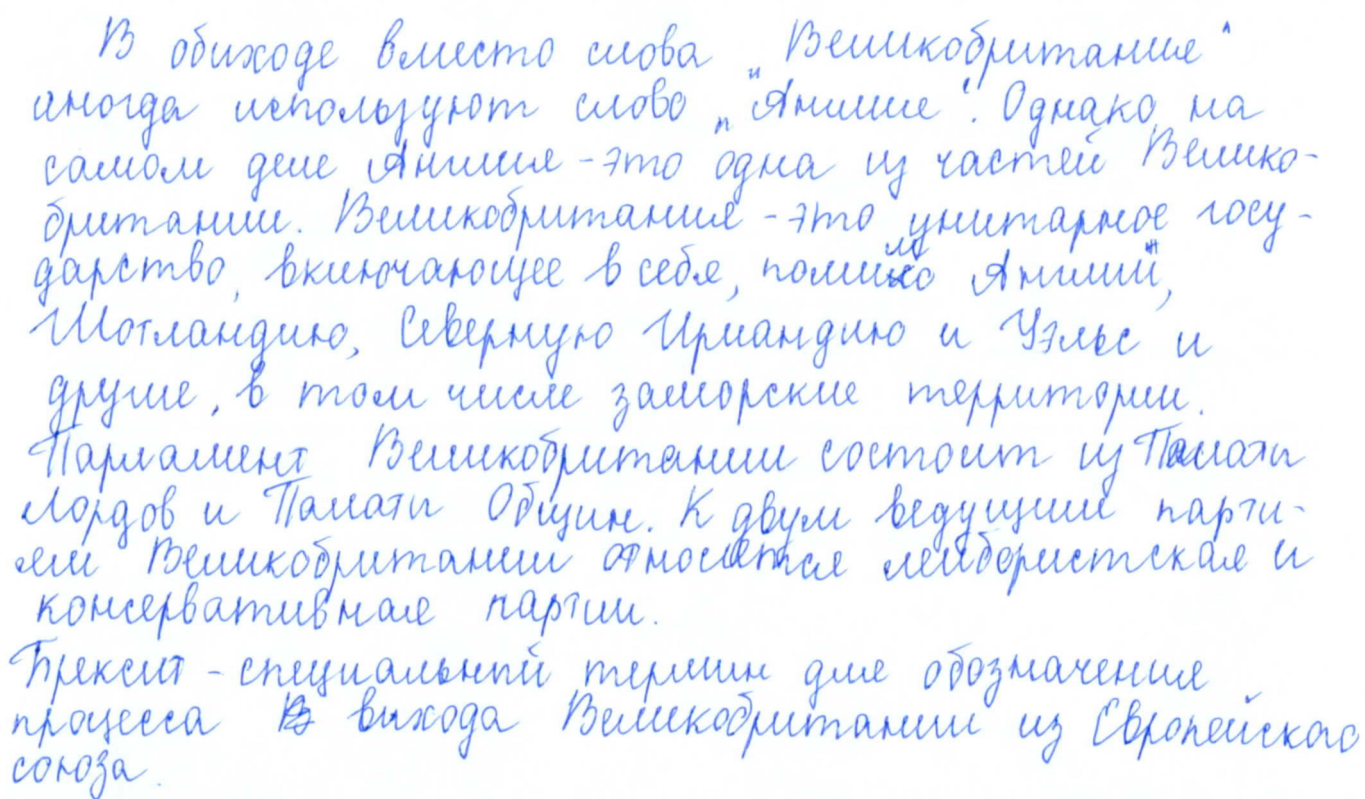 В обиходе вместо слова „Великобритания“
иногда используют слово „Англия“. Однако, на
самом деле Англия - это одна из частей Велико-
британии. Великобритания - это унитарное госу-
дарство, включающее в себя, помимо Англии,
Шотландию, Северную Ирландию и Уэльс и
другие, в том числе заморские территории.
Парламент Великобритании состоит из Палаты
Лордов и Палаты Общин. К двум ведущим парти-
ям Великобритании относятся лейбористская и
консервативная партии.
Брексит - специальный термин для обозначения
процесса выхода Великобритании из Европейского
союза.